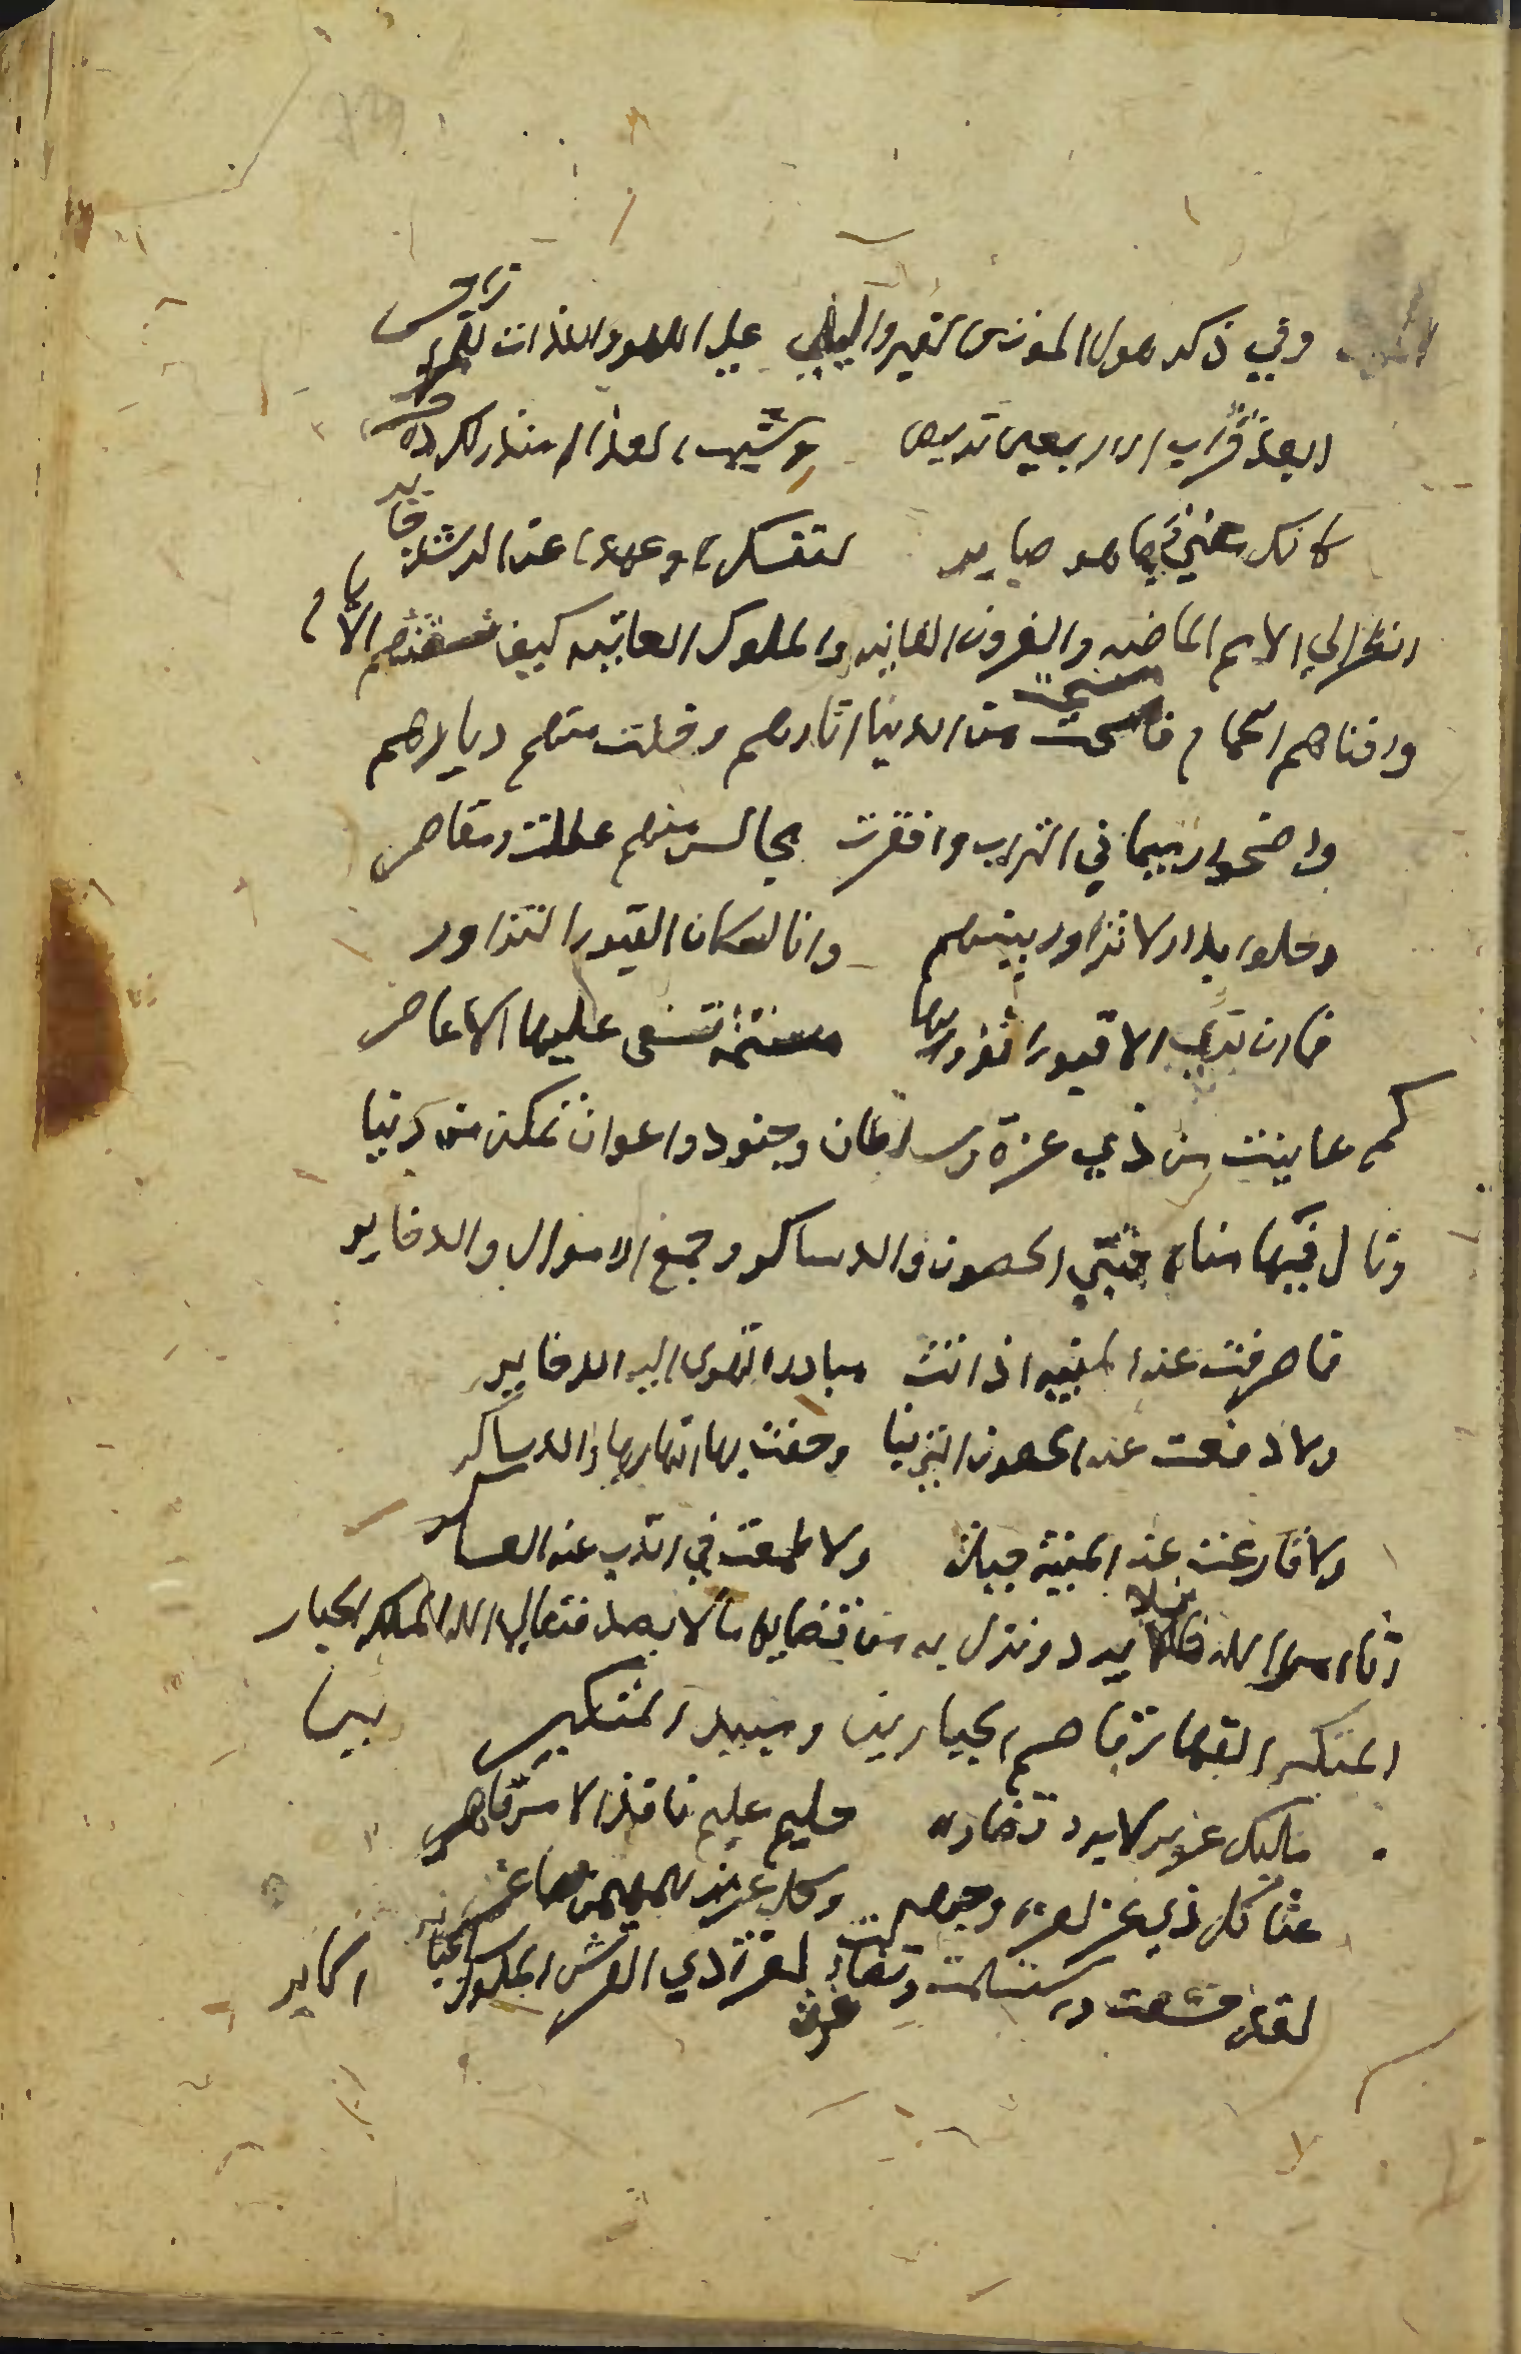 وفي ذكر هول الموت والقبر والبلى عن اللهو واللذات للمرء زاجر
ابعد قراب الاربعين تربص وشيب القذال منذر لك
كانك معني بما هو ضاير لنفسك عمدا عن الرشد حاير
انظر الي الامم الماضيه والقرون الفانيه والملوك العاتيه كيف الايام
وافناهم الحمام فامتحت من الدنيا اثارهم وخلت منهم ديارهم
واضحوا رميما في التراب واقفرت مجالس منهم عطلت ومقاصر
وحلوا بدار لا تزاور بينهم وانا لسكان القبور التزاور
فما ان تري الا قبورا ثووا بها مسنمة تسفى عليها الاعاصر
كم عاينت من ذي عزة وسلطان وجنود واعوان تمكن من دنيا
ونال فيها مناه فبني الحصون والدساكر وجمع الاموال والدخاير
فما صرفت عنه المنيه اذ اتت مبادرة تهوى اليه الدخاير
ولا دفعت عنه الحصون التي بنا وحفت بها انهارها والدساكر
ولا قارعت عنه المنية حيلة ولا طمعت في الذب عنه العساكر
اتاه من الله ما لا يرد ونزل به من قضايه ما لا يصد فتعالى الله الملك الجبار
المتكبر القهار قاصم الجبارين ومبيد المتكبرين
مليك عزيز لا يرد قضاوه حليم عليم نافذ الامر قاهر
عنا كل ذي عز لعزة وجهه وكل عزيز للمهيمن صاغر
لقد خشعت واستسلمت وتضاءلت لعزة ذي العرش الملوك الجبابر